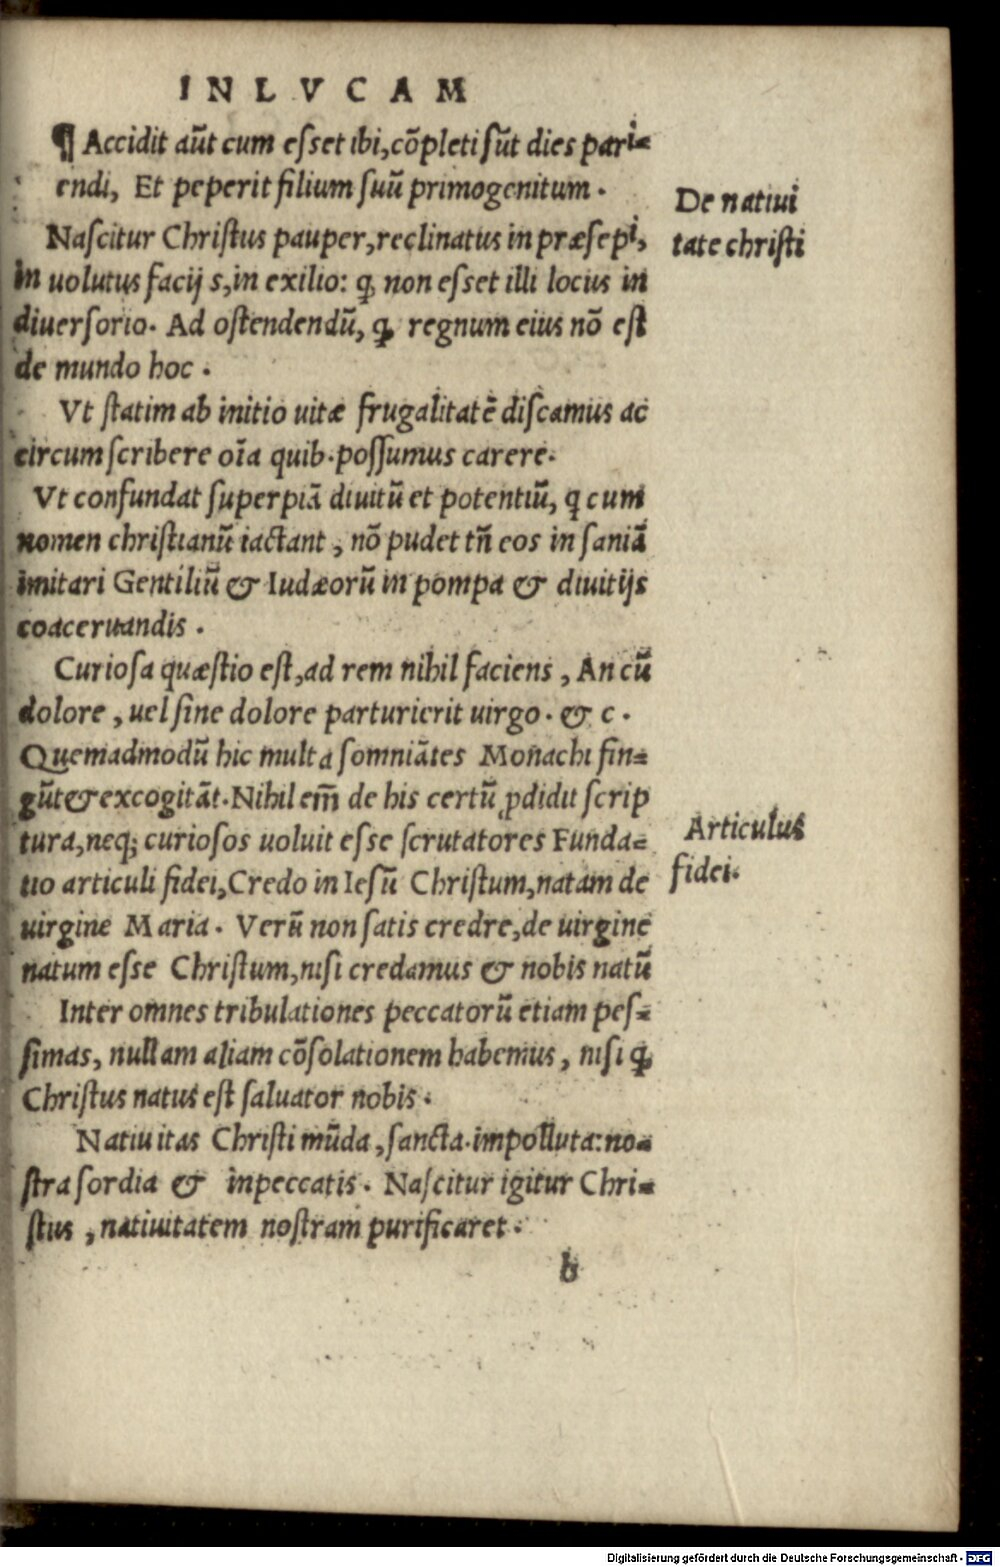 IN LVCAM
¶ Accidit aūt cum esset ibi, cōpleti sūt dies pari=
endi, Et peperit filium suū primogenitum.
De natiui
tate christi
Nascitur Christus pauper, reclinatus in præsepi,
in uolutus facijs, in exilio: ꝙ non esset illi locus in
diuersorio. Ad ostendendū, ꝙ regnum eius nō est
de mundo hoc.
Vt statim ab initio uitæ frugalitatē discamus ac
circumscribere oīa quib. possumus carere.
Vt confundat superpiā diuitū et potentiū, q cum
nomen christianū iactant, nō pudet tñ eos insaniā
imitari Gentiliū & Iudæorū in pompa & diuitijs
coaceruandis.
Curiosa quæstio est, ad rem nihil faciens, An cū
dolore, uel sine dolore parturierit uirgo. & c.
Quemadmodū hic multa somniātes Monachi fin=
gūt & excogitāt. Nihil em̄ de his certū ꝓdidit scrip
tura, neq; curiosos uoluit esse scrutatores Funda=
tio articuli fidei, Credo in Iesū Christum, natam de
Articulus
fidei.
uirgine Maria. Verū non satis credre, de uirgine
natum esse Christum, nisi credamus & nobis natū
Inter omnes tribulationes peccatorū etiam pes=
simas, nullam aliam cōsolationem habemus, nisi ꝙ
Christus natus est saluator nobis.
Natiuitas Christi mūda, sancta. impolluta: no=
stra sordia & inpeccatis. Nascitur igitur Chri=
stus, natiuitatem nostram purificaret.
b
Digitalisierung gefördert durch die Deutsche Forschungsgemeinschaft - DFG